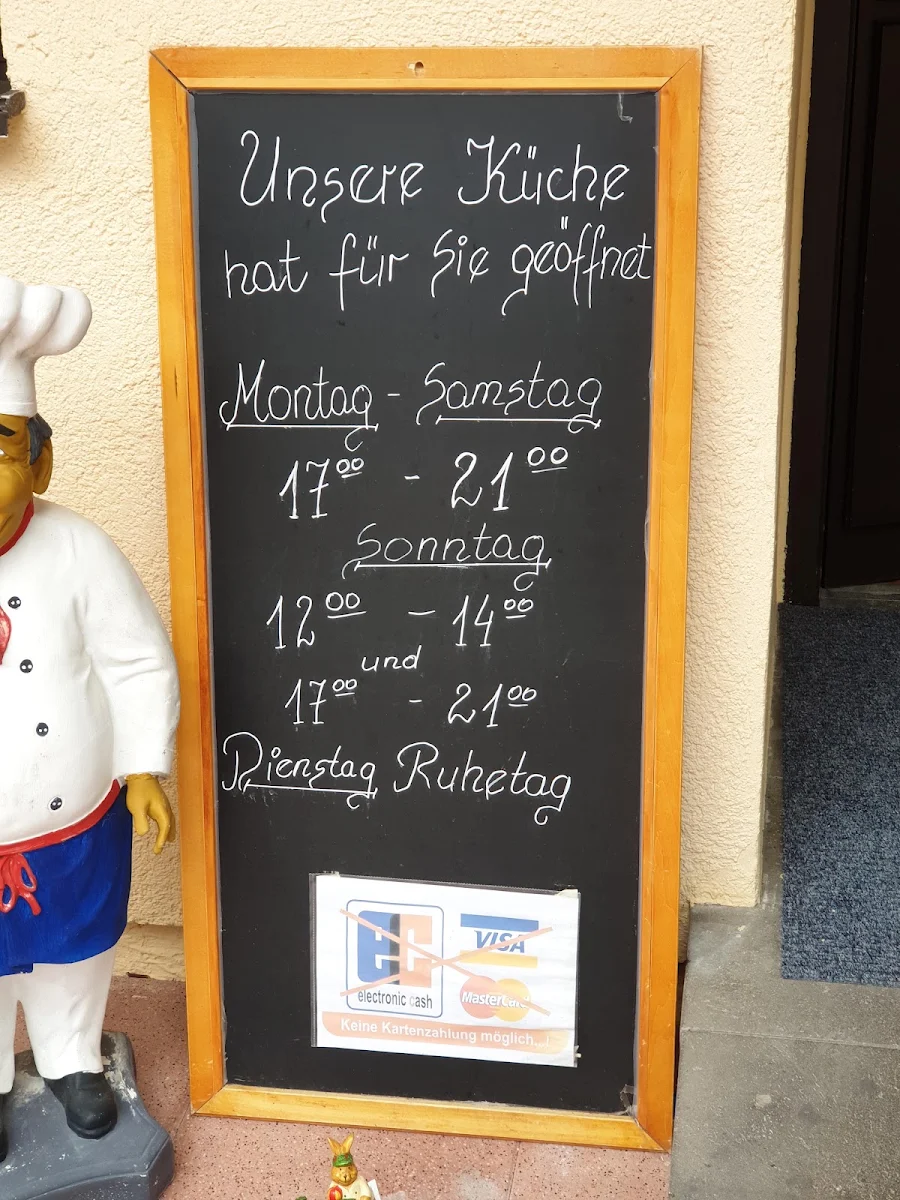 Unsere Küche
hat für Sie geöffnet
Montag - Samstag
17⁰⁰ - 21⁰⁰
Sonntag
12⁰⁰ - 14⁰⁰
und
17⁰⁰ - 21⁰⁰
Dienstag Ruhetag
EC VISA
electronic cash MasterCard
Keine Kartenzahlung möglich...!